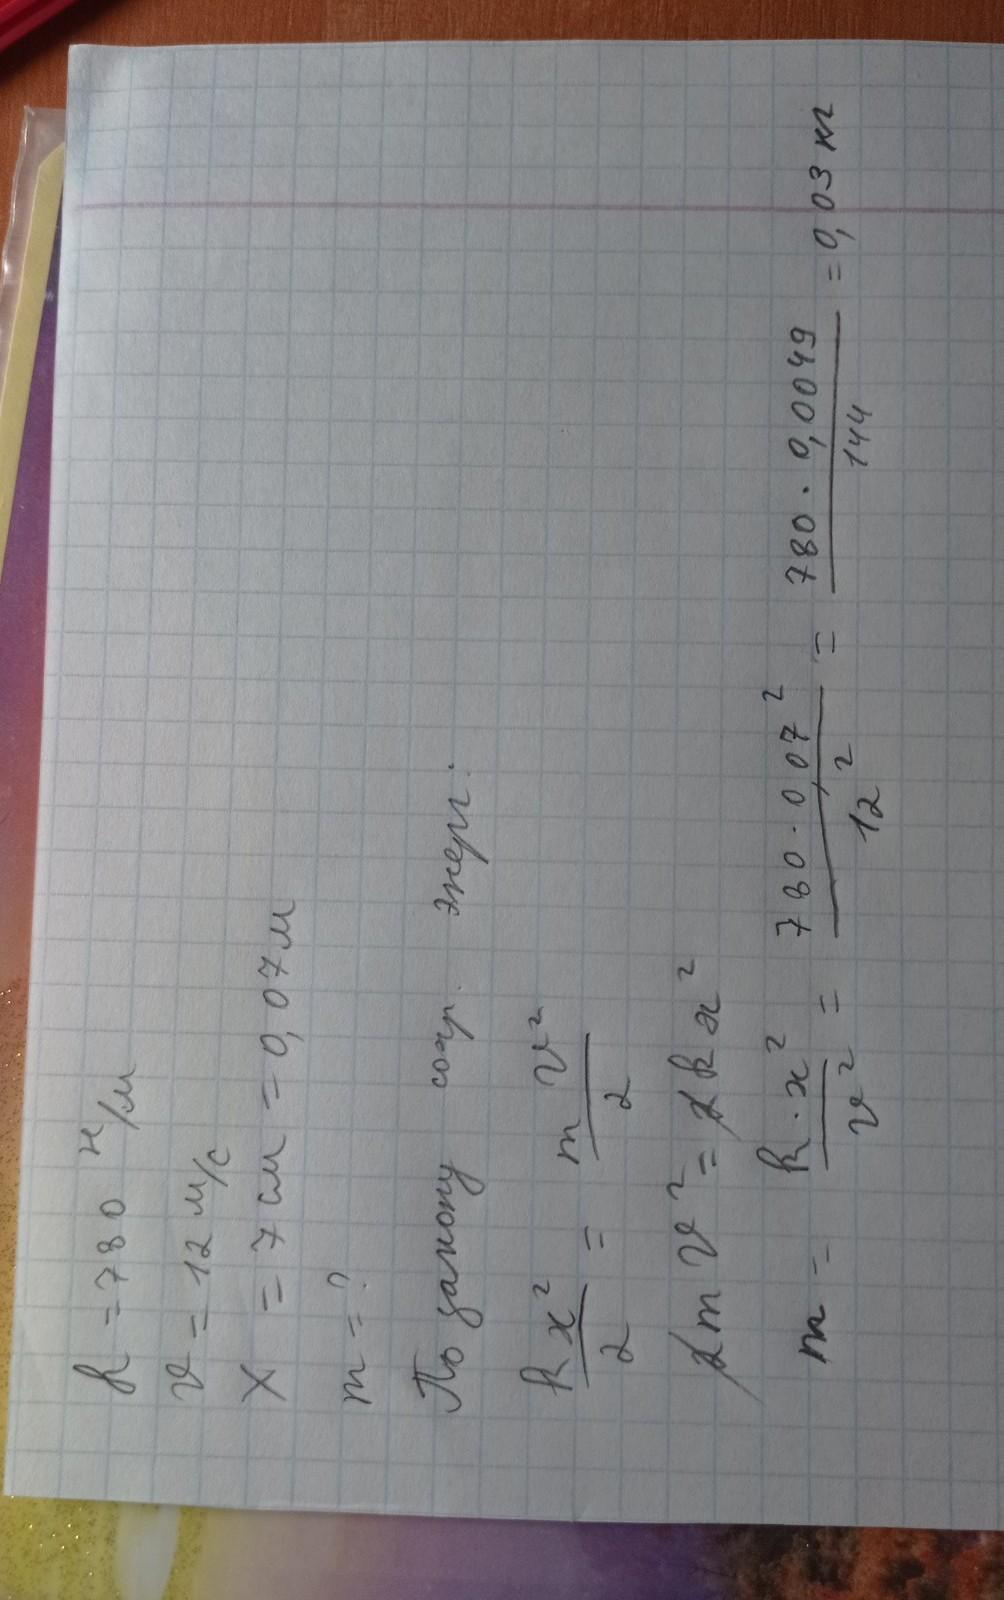 k = 780 Н/м
v = 12 м/с
x = 7 см = 0,07 м
m = ?
По закону сохр. энерг.:
kx²/2 = mv²/2
2mv² = 2kx²
m = k·x²/v² = 780·0,07²/12² = 780·0,0049/144 = 0,03 кг